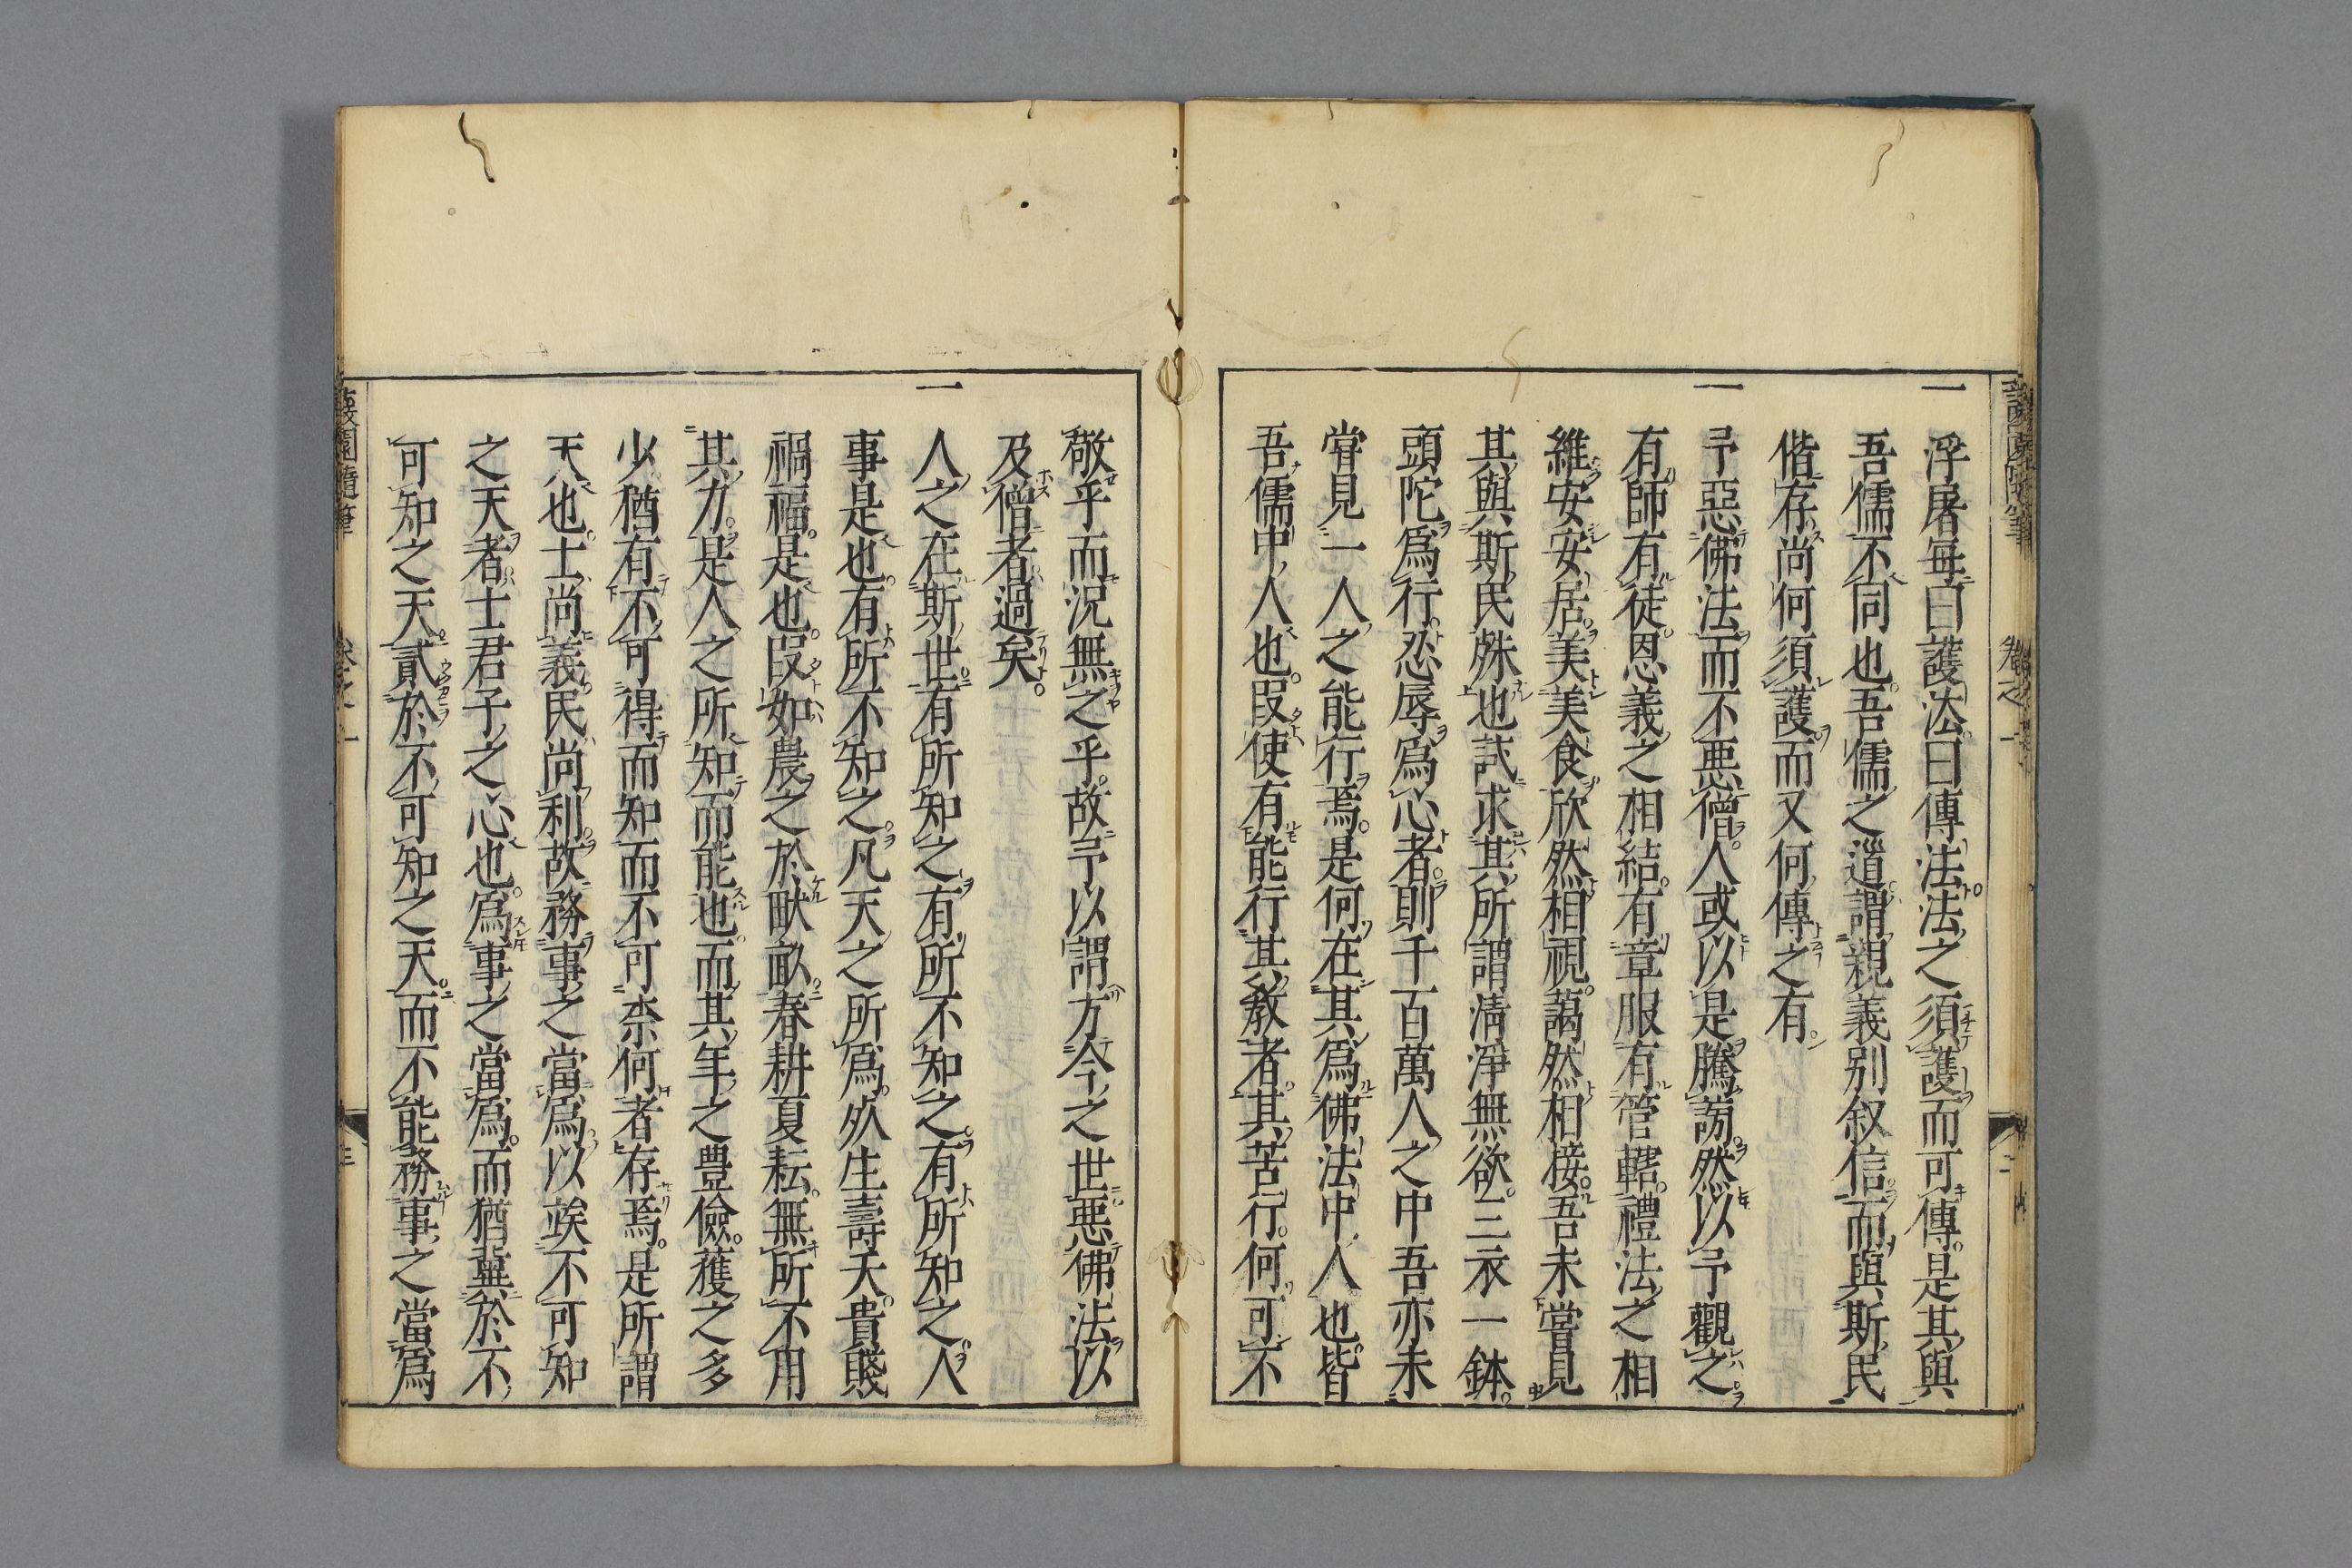 一浮屠每曰護法曰傳法法之須護而可傳是其與
吾儒不同也吾儒之道謂親義別叙信而與斯民
偕存尚何須護而又何傳之有
一予惡佛法而不悪僧人或以是騰謗然以予觀之
有師有徒恩義之相結有章服有管轄禮法之相
維安安居美美食欣然相視藹然相接吾未嘗見
其與斯民殊也試求其所謂淸淨無欲三衣一鉢
頭陀爲行忍辱爲心者則千百萬人之中吾亦未
嘗見一人之能行焉是何在其爲佛法中人也皆
吾儒中人也叚使有能行其教者其苦行何可不
敬乎而況無之乎故予以謂方今之世悪佛法以
及僧者過矣
一人之在斯世有所知之有所不知之有所知之人
事是也有所不知之凡天之所爲死生壽夭貴賤
禍福是也叚如農之於畎畝春耕夏耘無所不用
其力是人之所知而能也而其年之豊儉穫之多
少猶有不可得而知而不可柰何者存焉是所謂
天也士尚義民尚利故務事之當爲以竢不可知
之天者士君子之心也爲事之當爲而猶冀於不
可知之天貳於不可知之天而不能務事之當爲
蘐園隨筆 卷之一 二
蘐園隨筆 卷之一 三